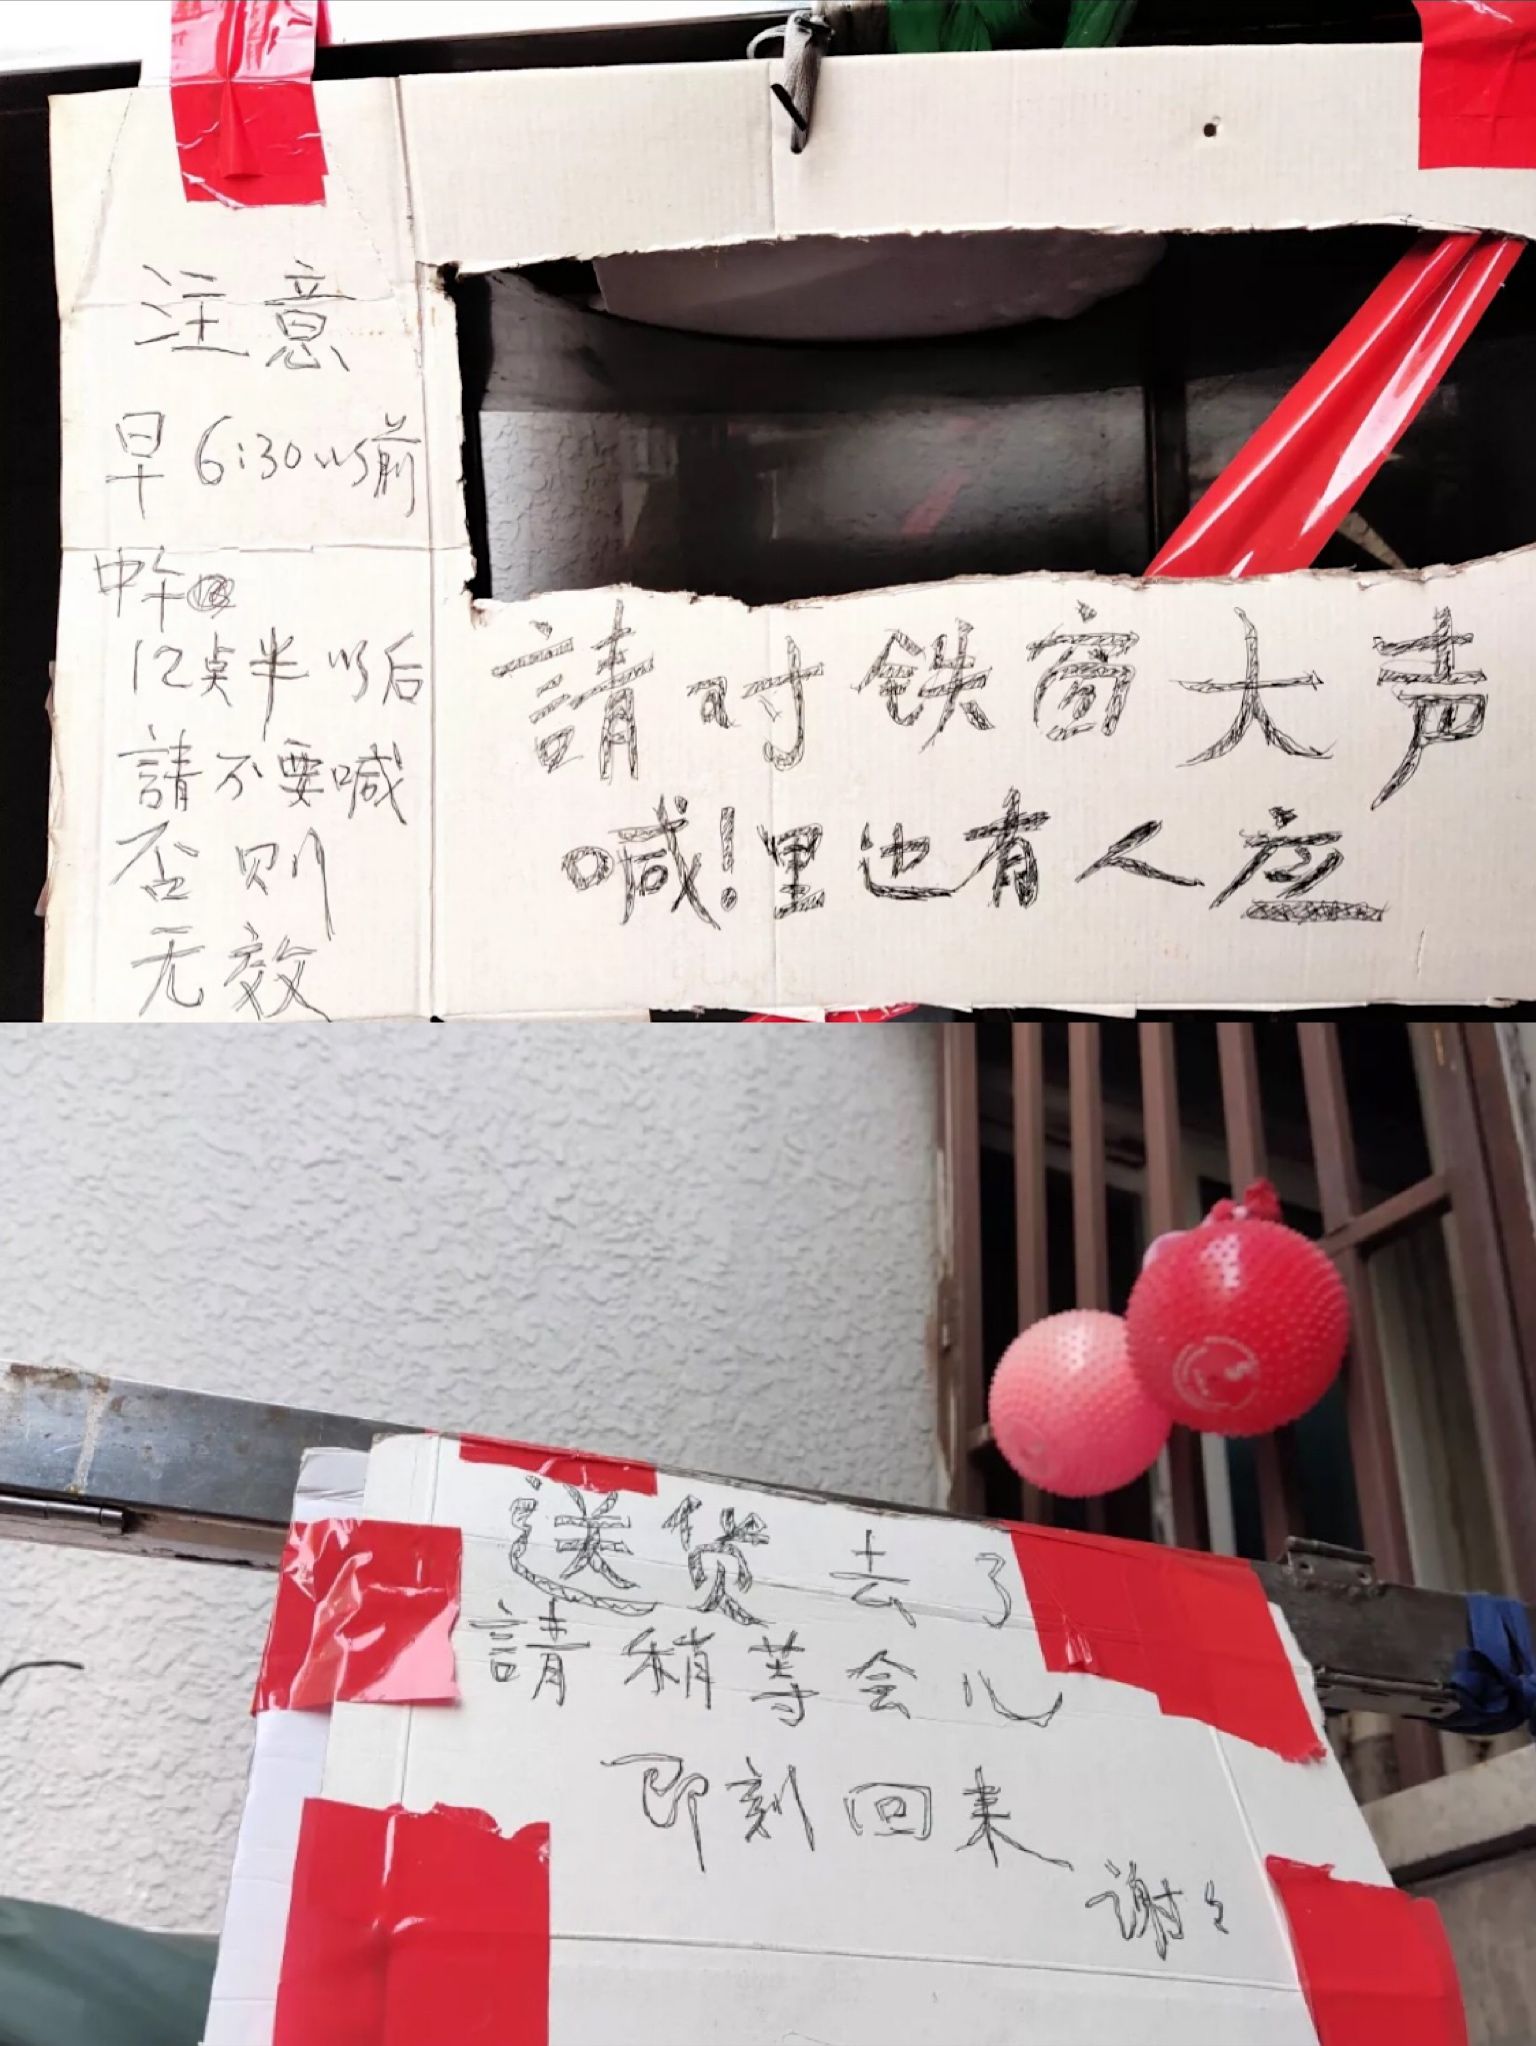 注意
早6:30以前
中午
12点半以后
請不要喊
否则
无效
請对铁窗大声
喊!里也有人应
送货去了
請稍等会儿
即刻回来
谢々